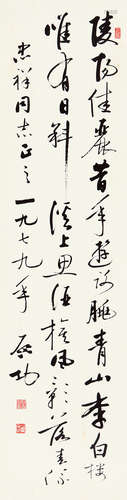 陵陽佳麗昔年遊謝朓青山李白樓
唯有日斜溪上思酒旗風影落春流
忠祥同志正之一九七九年 啓功